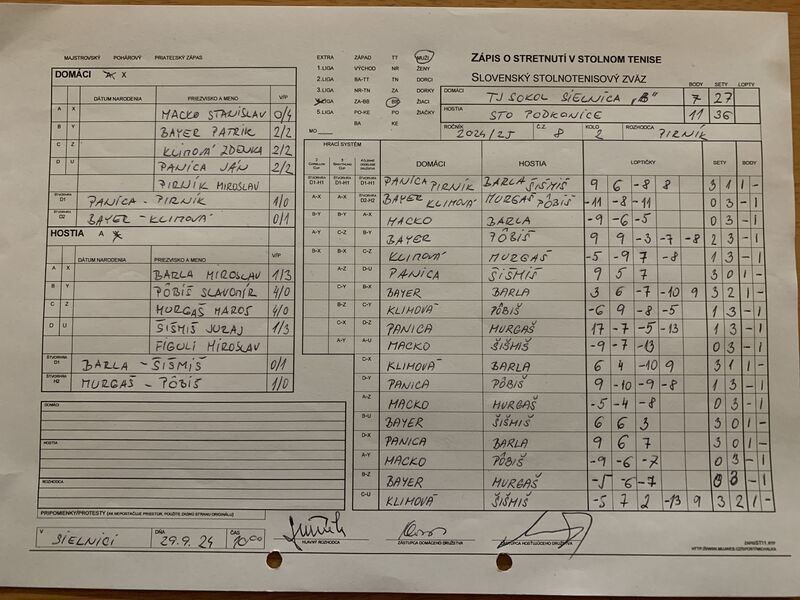 MAJSTROVSKÝ POHÁROVÝ PRIATEĽSKÝ ZÁPAS
EXTRA ZÁPAD TT MUŽI
1.LIGA VÝCHOD NR ŽENY
2.LIGA BA-TT TN DORCI
3.LIGA NR-TN ZA DORKY
4.LIGA ZA-BB BB ŽIACI
5.LIGA PO-KE PO ŽIAČKY
BA KE
MO
ZÁPIS O STRETNUTÍ V STOLNOM TENISE
SLOVENSKÝ STOLNOTENISOVÝ ZVÄZ
BODY SETY LOPTY
DOMÁCI TJ SOKOL SIELNICA "B" 7 27
HOSTIA STO PODKONICE 11 36
ROČNÍK 2024/25 Č.Z. 8 KOLO 2 ROZHODCA PIRNÍK
DOMÁCI A X
DÁTUM NARODENIA PRIEZVISKO A MENO V/P
A X MACKO STANISLAV 0/4
B Y BAYER PATRIK 2/2
C Z KLIMOVÁ ZDENKA 2/2
D U PANICA JÁN 2/2
PIRNIK MIROSLAV
ŠTVORHRA D1 PANICA - PIRNIK 1/0
ŠTVORHRA D2 BAYER - KLIMOVÁ 0/1
HOSTIA A X
DÁTUM NARODENIA PRIEZVISKO A MENO V/P
A X BARLA MIROSLAV 1/3
B Y PÔBIŠ SLAVOMÍR 4/0
C Z MURGAŠ MAROŠ 4/0
D U ŠIŠMIŠ JURAJ 1/3
FIGULI MIROSLAV
ŠTVORHRA D1 BARLA - ŠIŠMIŠ 0/1
ŠTVORHRA H2 MURGAŠ - PÔBIŠ 1/0
DOMÁCI
HOSTIA
ROZHODCA
PRIPOMIENKY/PROTESTY (AK NEPOSTAČUJE PRIESTOR, POUŽITE ZADNÚ STRANU ORIGINÁLU)
HRACÍ SYSTÉM
DOMÁCI HOSTIA LOPTIČKY SETY BODY
D1-H1 D1-H1 D1-H1 PANICA PIRNÍK BARLA ŠIŠMIŠ 9 6 -8 8 3 1 1 -
A-X A-X D2-H2 BAYER KLIMOVÁ MURGAŠ PÔBIŠ -11 -8 -11 0 3 - 1
B-Y B-Y A-X MACKO BARLA -9 -6 -5 0 3 - 1
A-Y C-Z B-Y BAYER PÔBIŠ 9 9 -3 -7 -8 2 3 - 1
B-X B-X C-Z KLIMOVÁ MURGAŠ -5 -9 7 -8 1 3 - 1
A-Z D-U PANICA ŠIŠMIŠ 9 5 7 3 0 1 -
C-Y B-X BAYER BARLA 3 6 -7 -10 9 3 2 1 -
B-Z C-Y KLIMOVÁ PÔBIŠ -6 9 -8 -5 1 3 - 1
C-X D-Z PANICA MURGAŠ 17 -7 -5 -13 1 3 - 1
A-Y A-U MACKO ŠIŠMIŠ -9 -7 -13 0 3 - 1
C-X KLIMOVÁ BARLA 6 4 -10 9 3 1 1 -
D-Y PANICA PÔBIŠ 9 -10 -9 -8 1 3 - 1
A-Z MACKO MURGAŠ -5 -4 -8 0 3 - 1
B-U BAYER ŠIŠMIŠ 6 6 3 3 0 1 -
D-X PANICA BARLA 9 6 7 3 0 1 -
A-Y MACKO PÔBIŠ -9 -6 -7 0 3 - 1
B-Z BAYER MURGAŠ -5 -6 -7 0 3 - 1
C-U KLIMOVÁ ŠIŠMIŠ -5 7 2 -13 9 3 2 1 -
V SIELNICI DŇA 29.9.24 ČAS 10:00
HLAVNÝ ROZHODCA ZÁSTUPCA DOMÁCEHO DRUŽSTVA ZÁSTUPCA HOSŤUJÚCEHO DRUŽSTVA